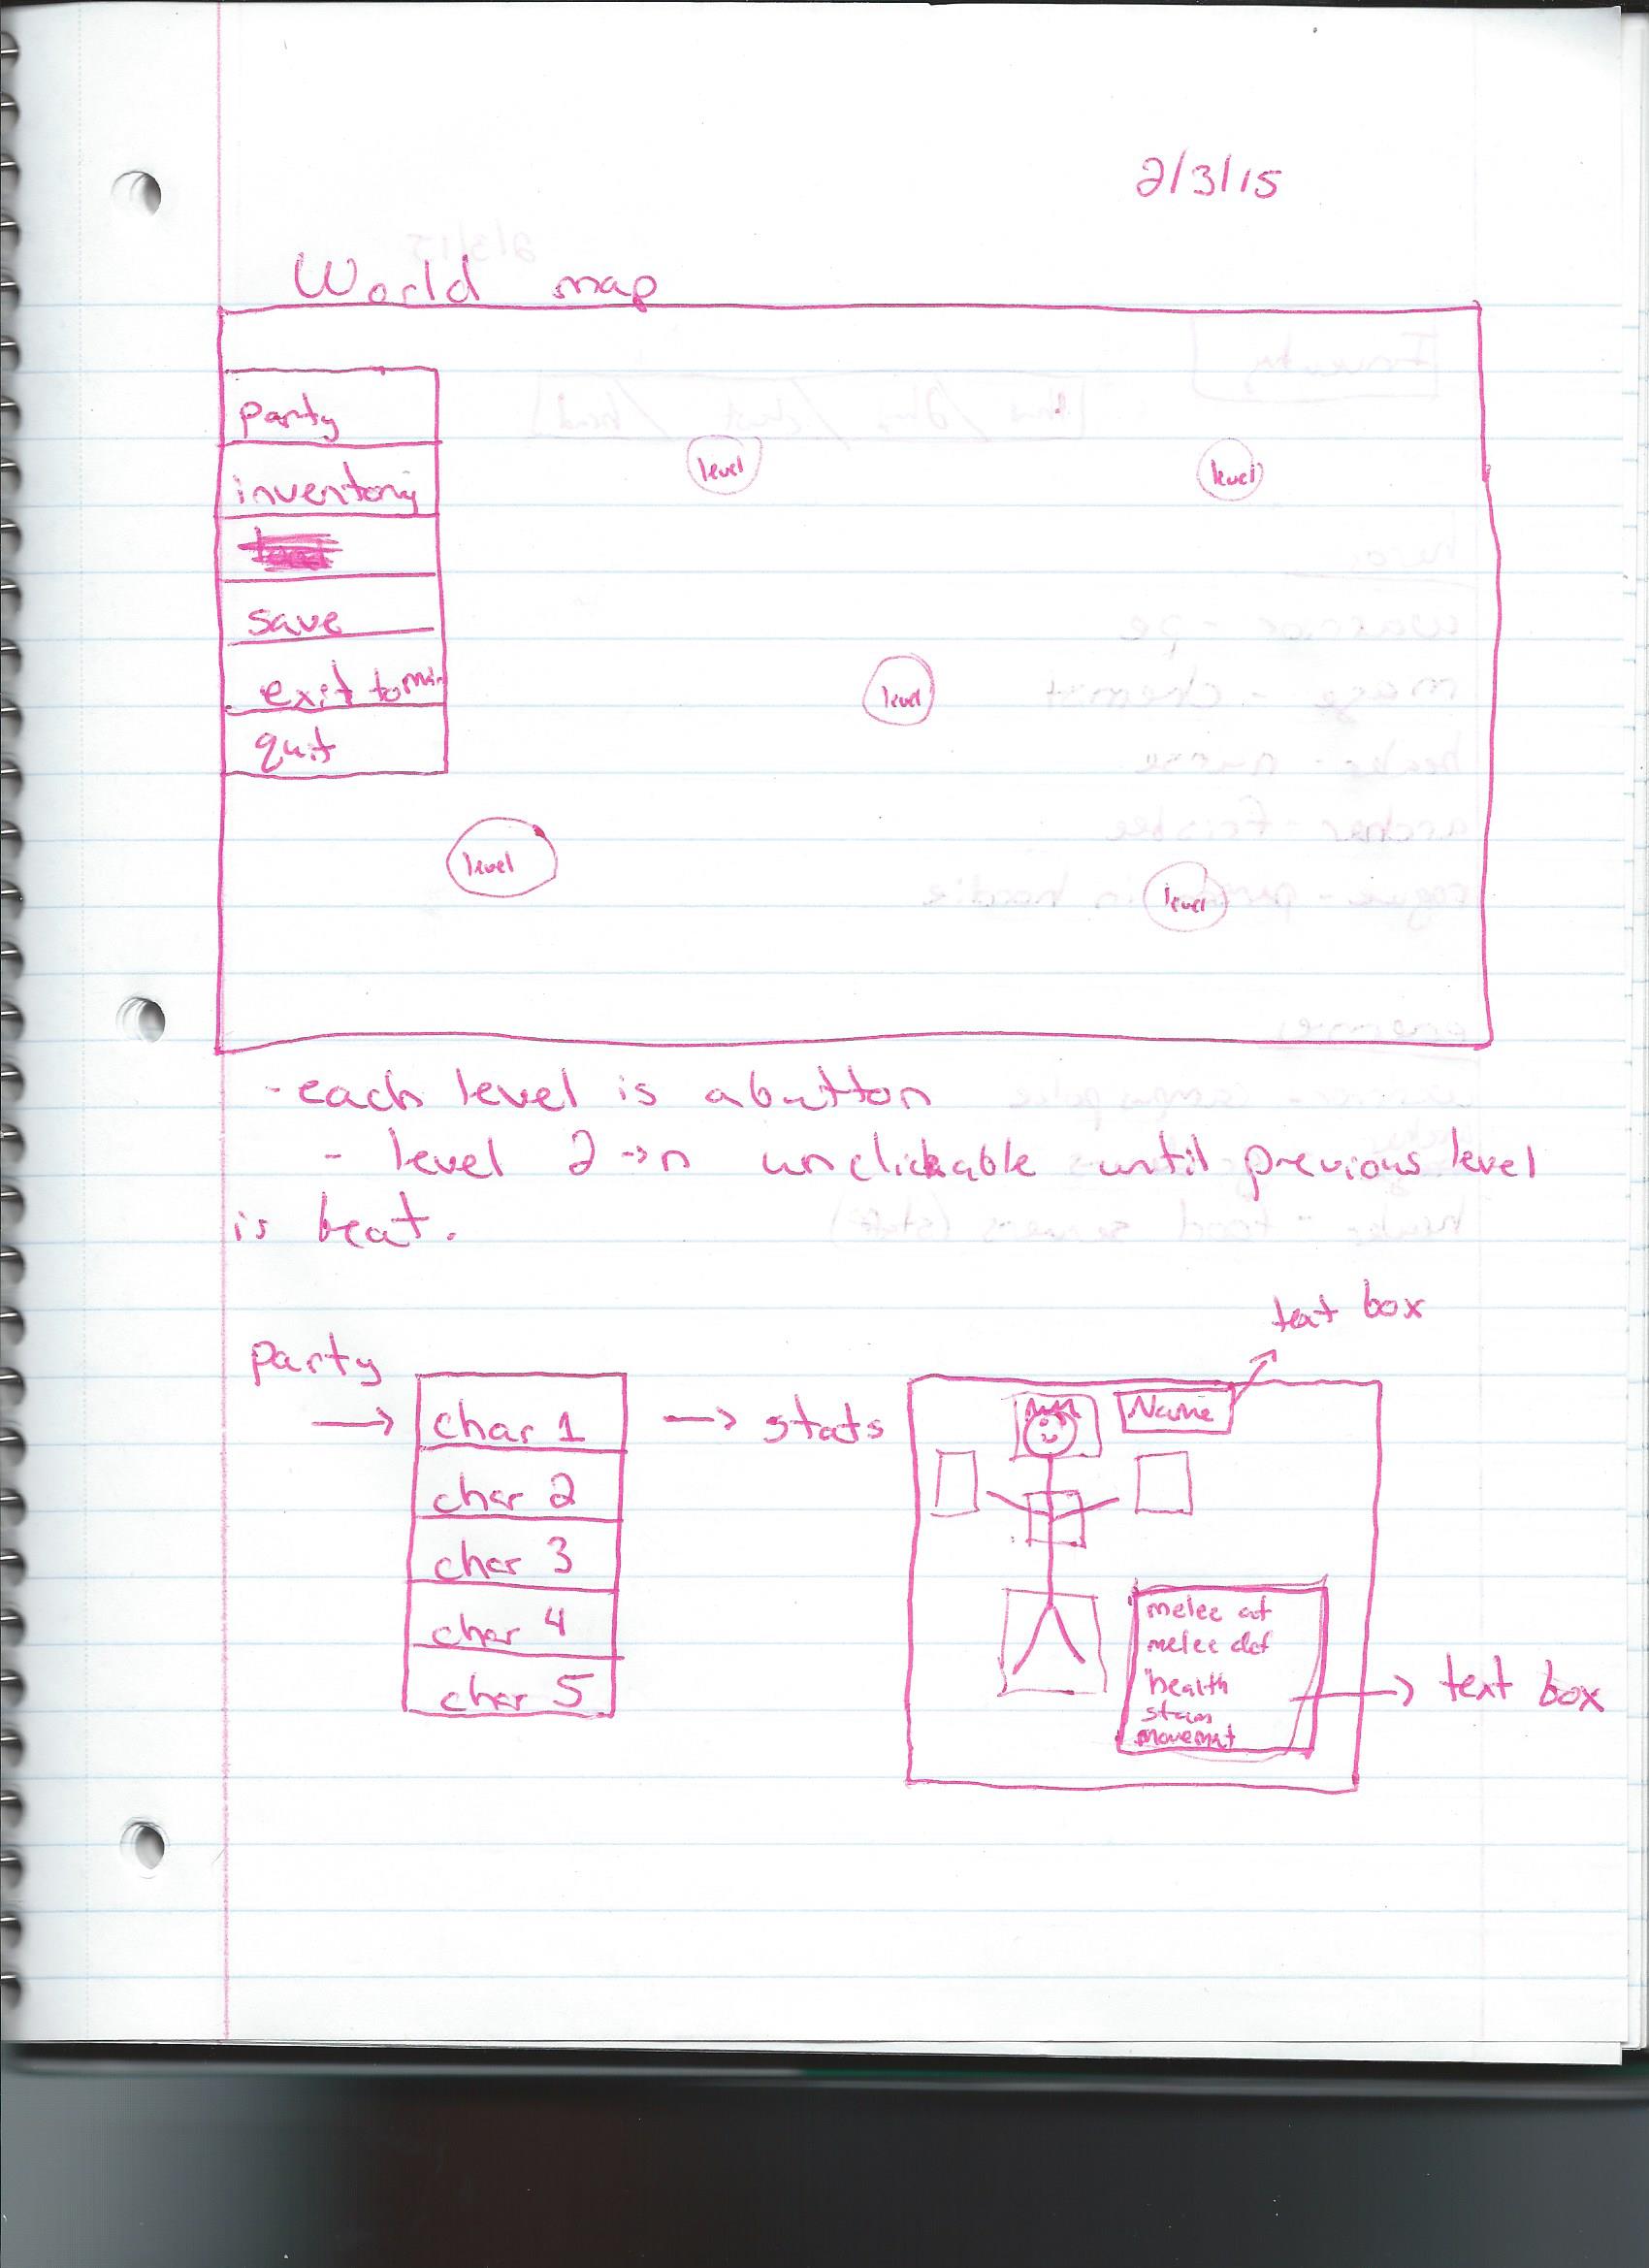 2/3/15
World map
party
inventory
save
exit to main
quit
level
level
level
level
level
- each level is a button
- level 2 → n unclickable until previous level
is beat.
party
→ char 1 → stats
char 2
char 3
char 4
char 5
text box
Name
melee at
melee def
health
stam
movemnt
→ text box